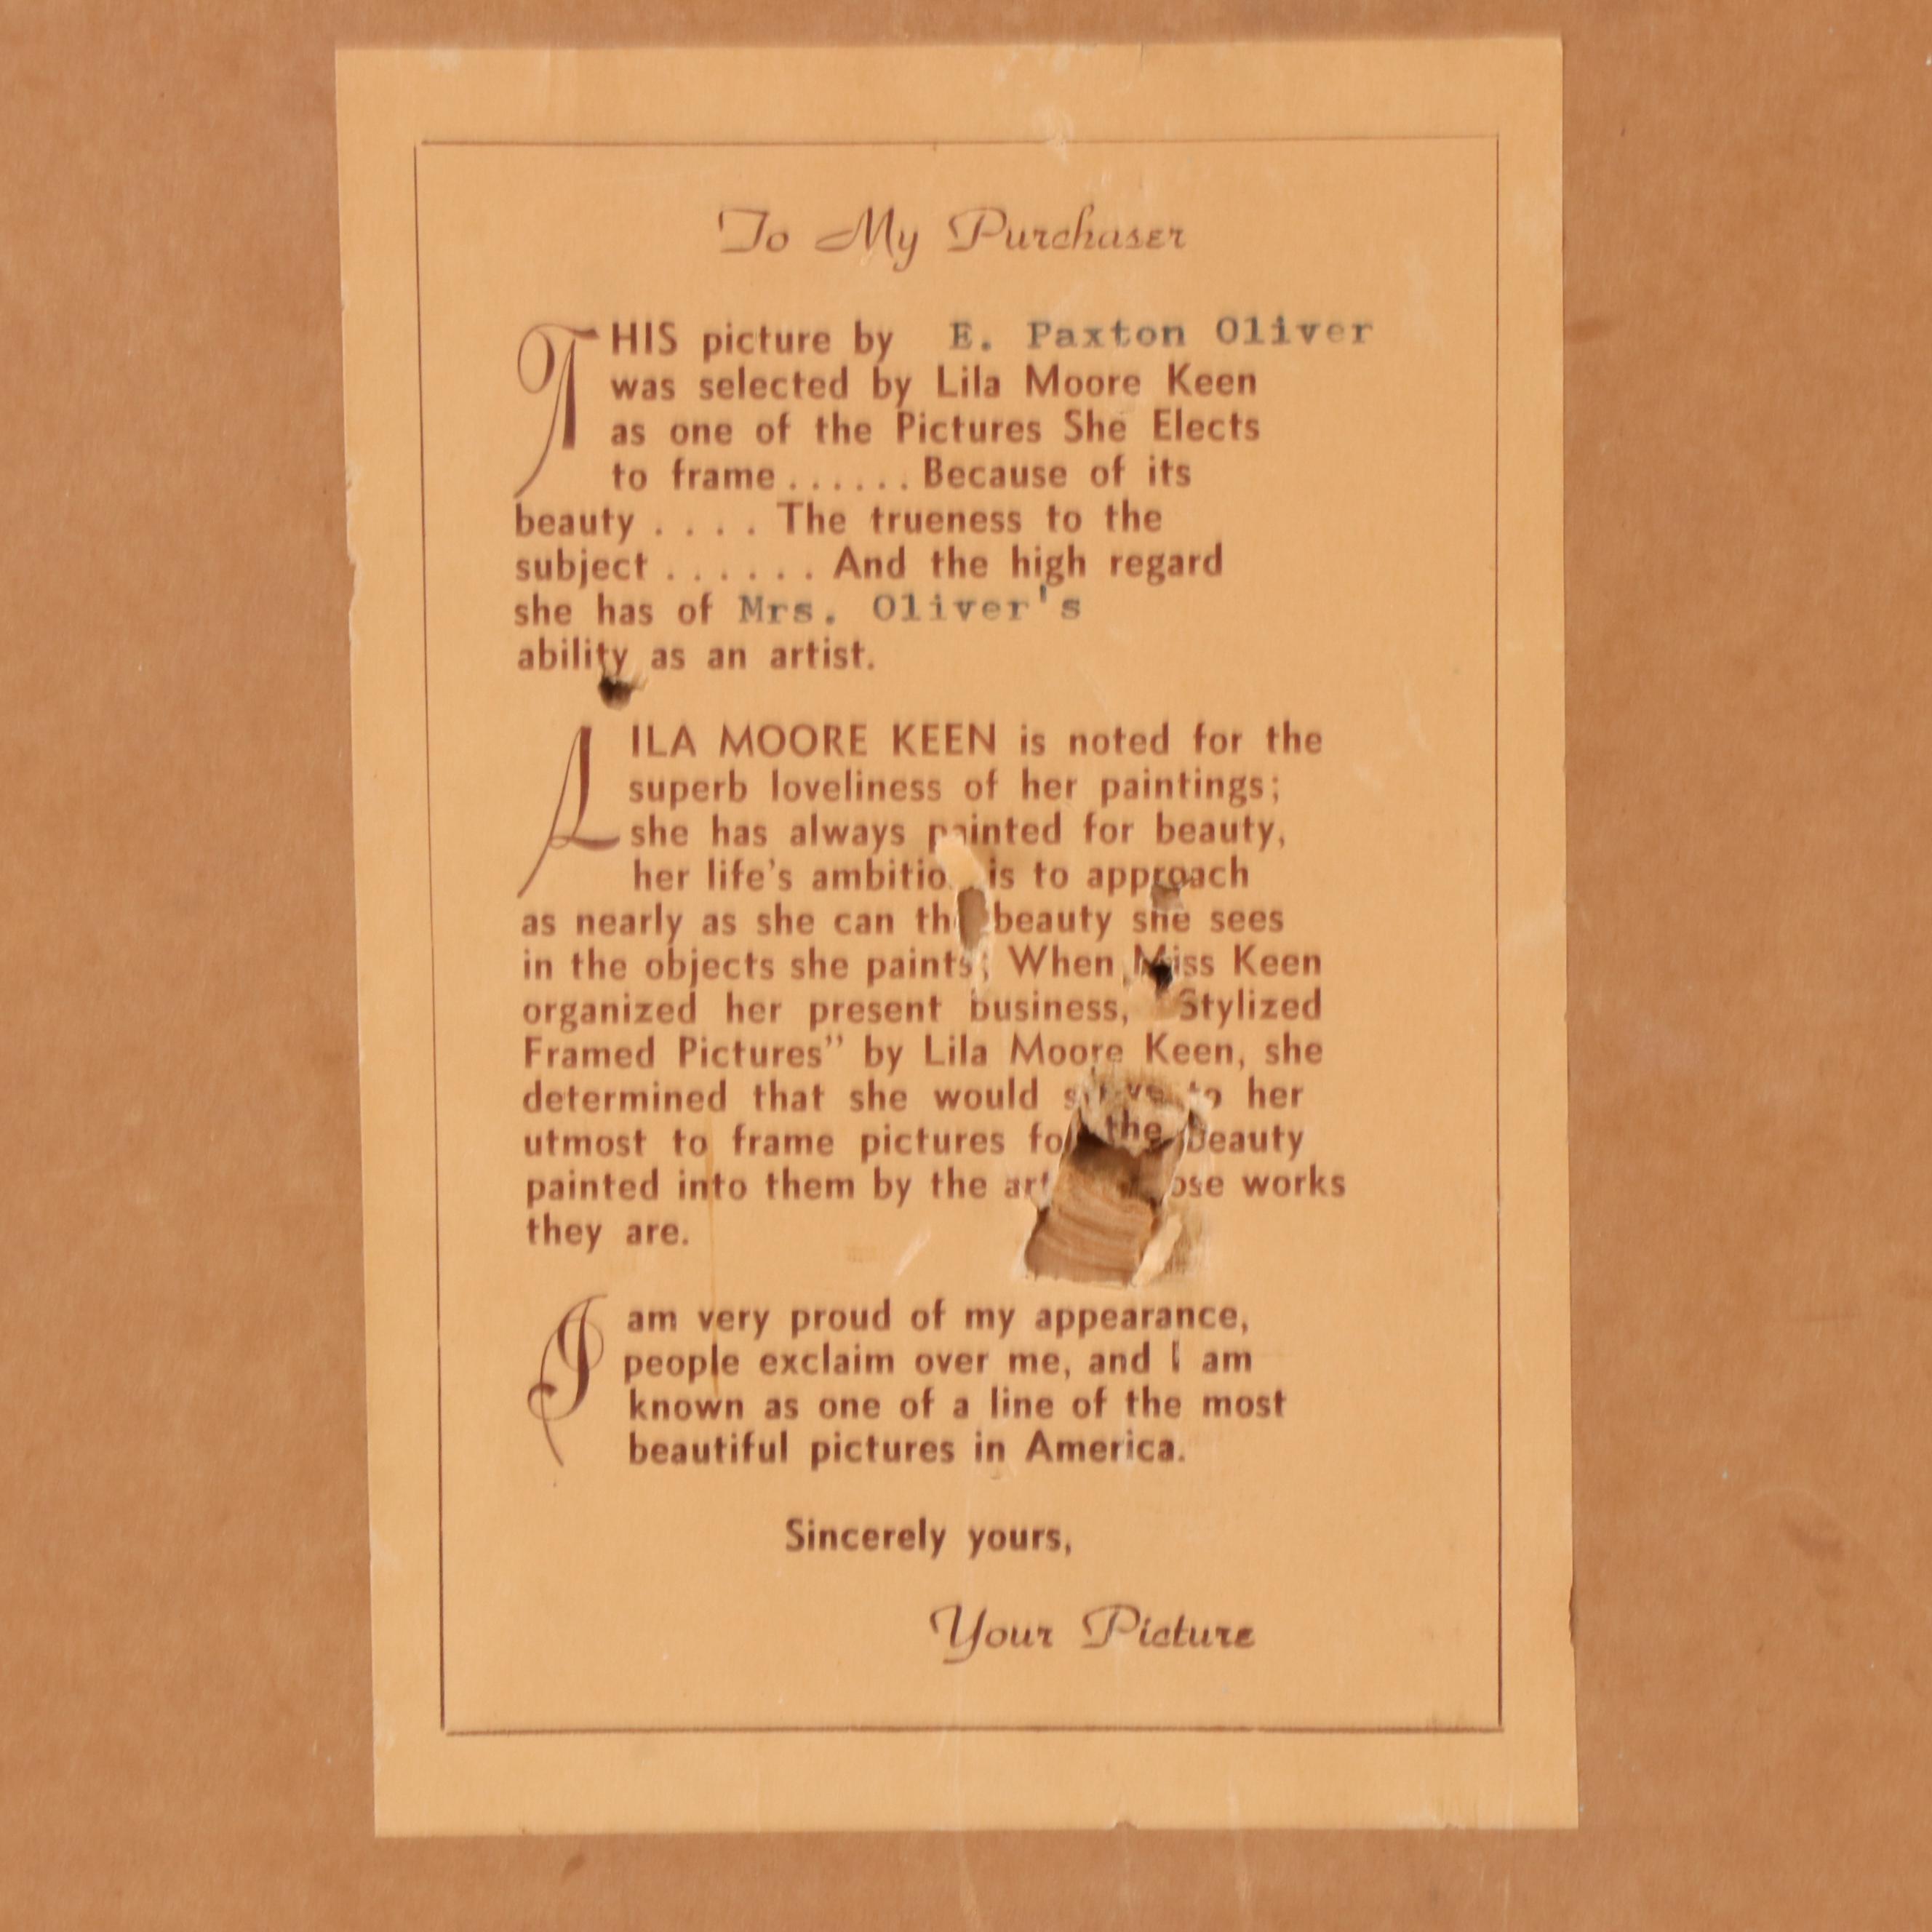 To My Purchaser
THIS picture by E. Paxton Oliver
was selected by Lila Moore Keen
as one of the Pictures She Elects
to frame ...... Because of its
beauty .... The trueness to the
subject ...... And the high regard
she has of Mrs. Oliver's
ability as an artist.
LILA MOORE KEEN is noted for the
superb loveliness of her paintings;
she has always painted for beauty,
her life's ambition is to approach
as nearly as she can the beauty she sees
in the objects she paints; When Miss Keen
organized her present business, "Stylized
Framed Pictures" by Lila Moore Keen, she
determined that she would to her
utmost to frame pictures for the beauty
painted into them by the works
they are.
I am very proud of my appearance,
people exclaim over me, and I am
known as one of a line of the most
beautiful pictures in America.
Sincerely yours,
Your Picture